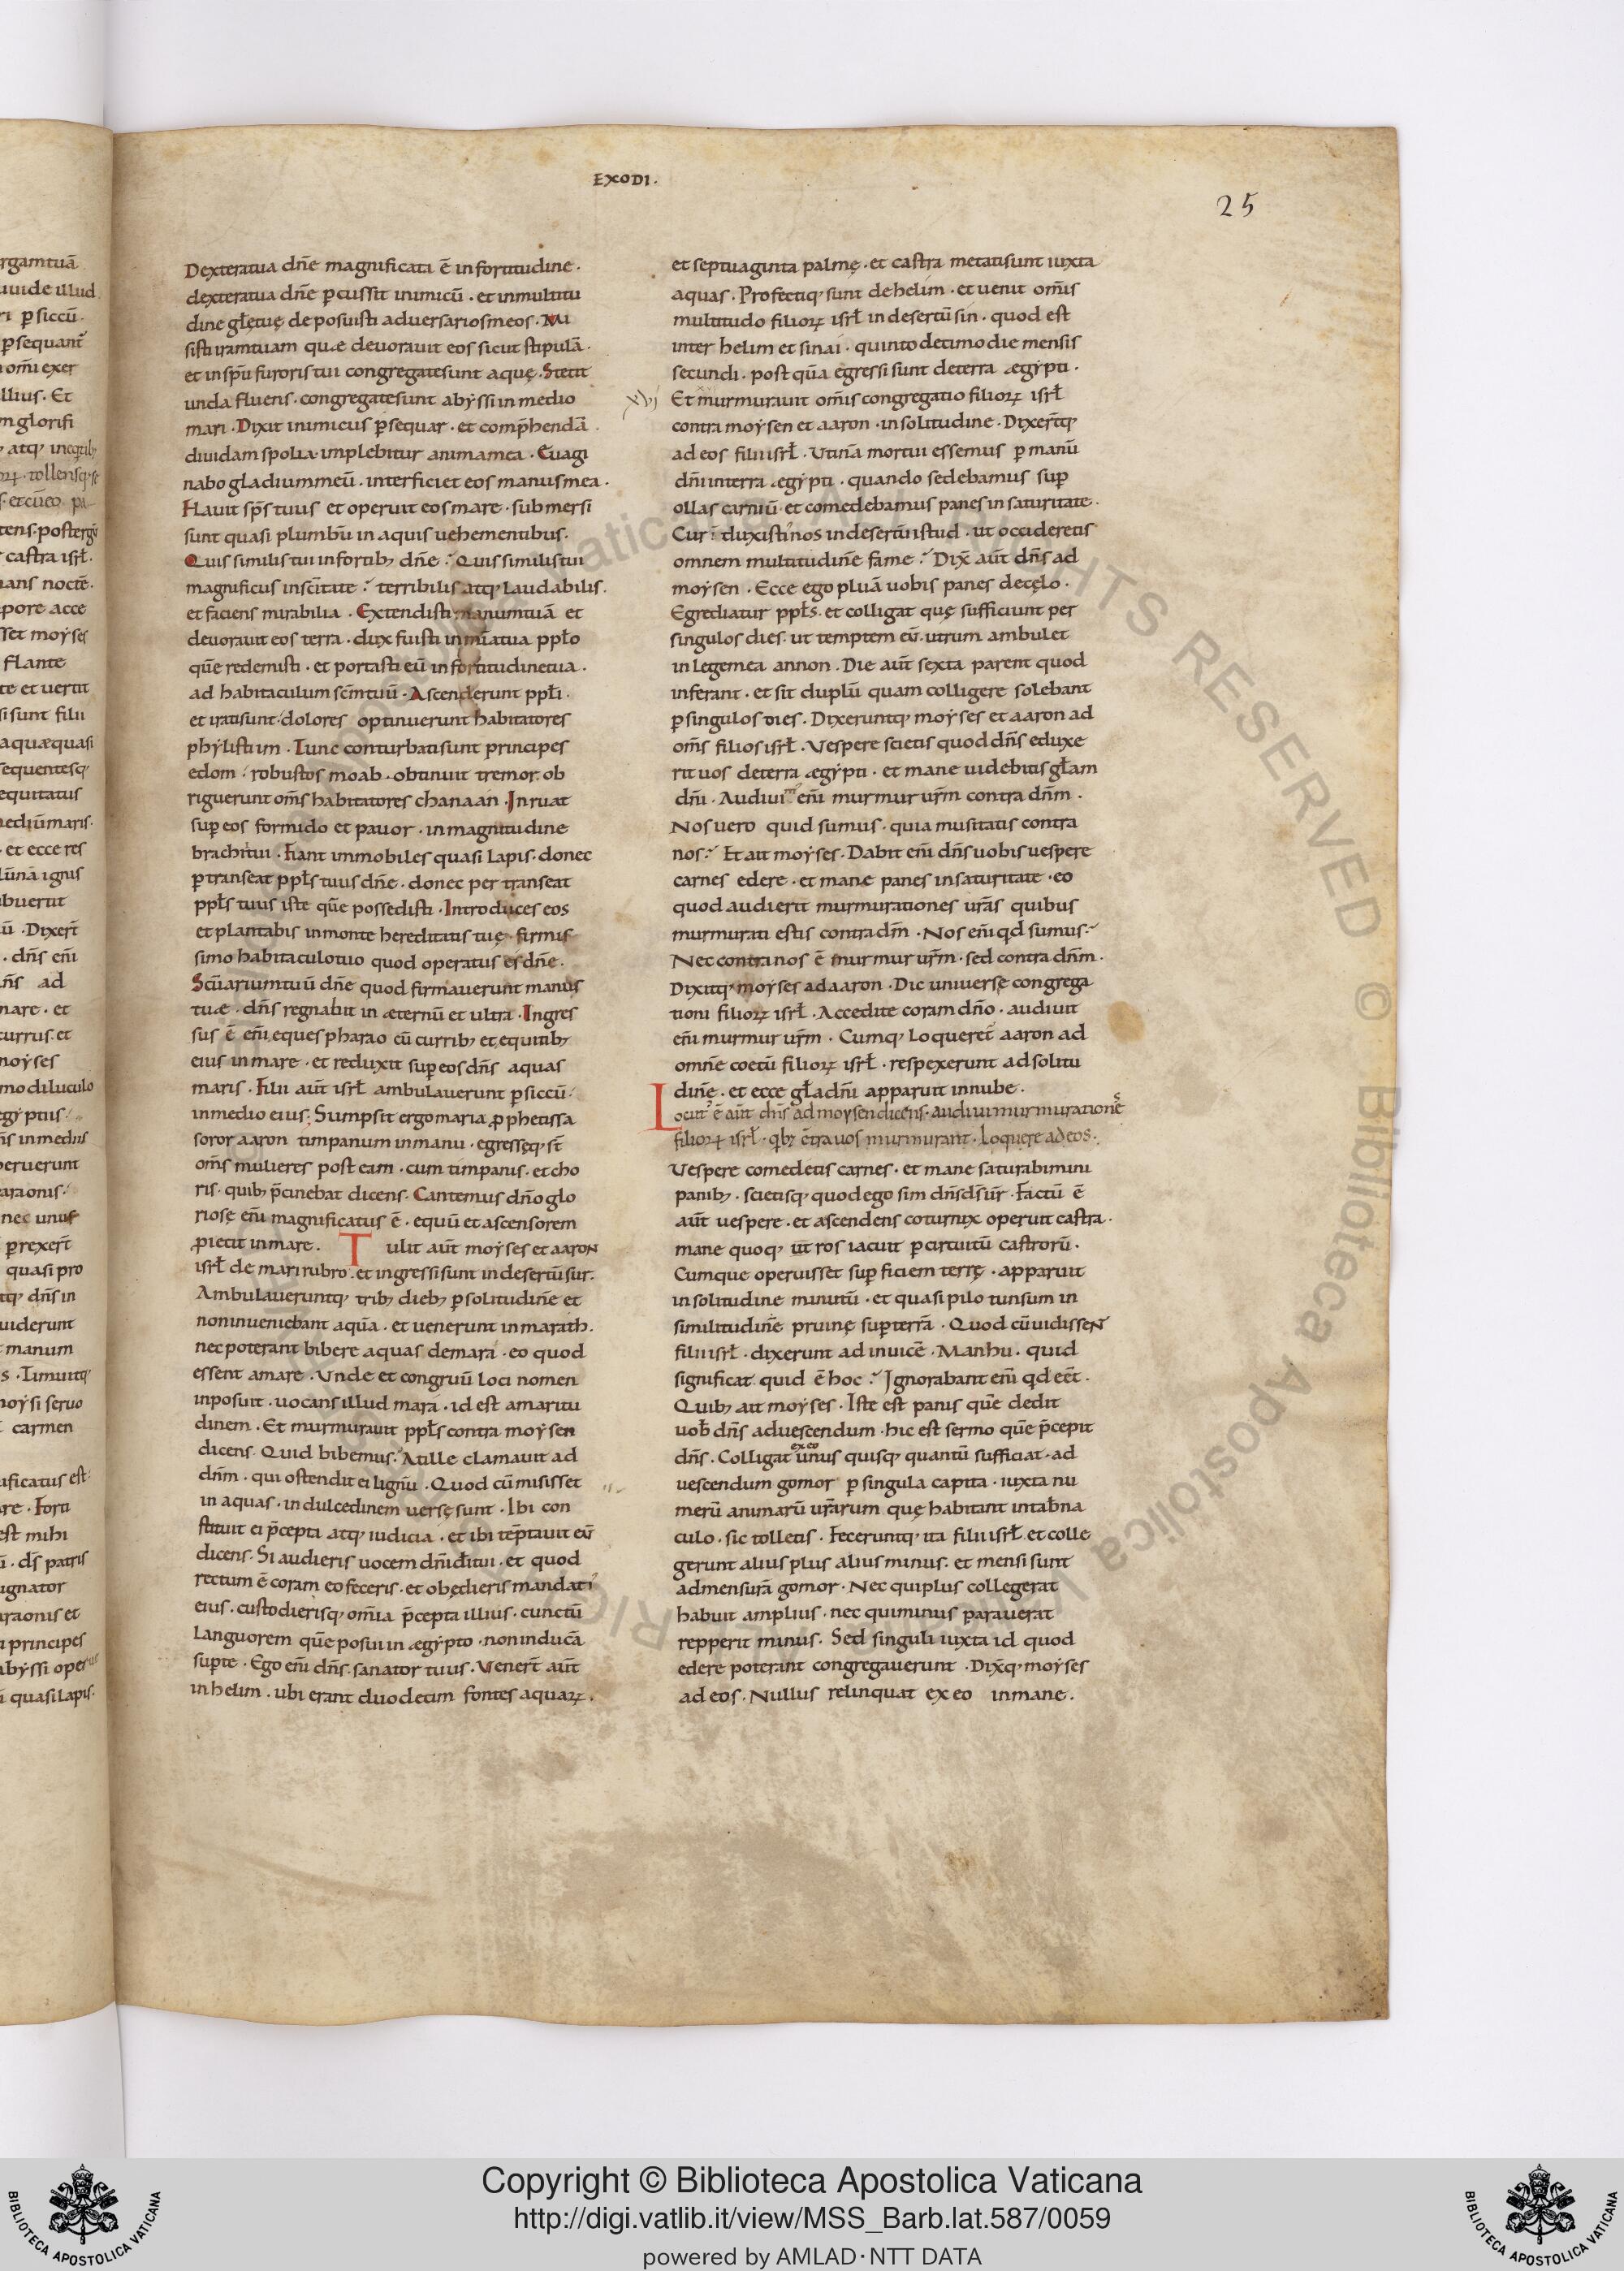 EXODI.
25
Dexteratua dñe magnificata ē in fortitudine.
dexteratua dñe pcussit inimicū. et inmultitu
dine głe̦tue̦ deposuisti adversariosmeos. Mi
sisti iramtuam quae devoravit eos sicut stipulā.
et inspū furoris tui congregatesunt aque̦. Stetit
unda fluens. congregatesunt abyssi in medio
mari. Dixit inimicus psequar. et comphendā.
dividam spolia. implebitur animamea. Evagi
nabo gladiummeū. interficiet eos manusmea.
Flavit sps̄ tuus et operuit eos mare. submersi
sunt quasi plumbū in aquis vehementibus.
Quis similis tui infortib; dñe? Quis similis tui
magnificus inscitate? terribilis atq; laudabilis.
et faciens mirabilia. Extendisti manumtuā et
devoravit eos terra. dux fuisti in miatua ppło
quē redemisti. et portasti eū in fortitudinetua.
ad habitaculum scmtuū. Ascenderunt ppłi.
et iratisunt. dolores optinuerunt habitatores
phylistiim. Tunc conturbatisunt principes
edom. robustos moab. obtinuit tremor. ob
riguerunt oms habitatores chanaan. Inruat
sup eos formido et pavor. in magnitudine
brachiitui. Fiant immobiles quasi lapis. donec
ptranseat ppłs tuus dñe. donec per transeat
ppłs tuus iste quē possedisti. Introduces eos
et plantabis in monte hereditatis tue̦. firmis
simo habitaculotuo quod operatus es dñe.
Scūariumtuū dñe quod firmaverunt manus
tuae. dñs regnabit in aeternū et ultra. Ingres
sus ē eñi eques pharao cū currib; et equitib;
eius in mare. et reduxit sup eos dñs aquas
maris. Filii aūt isrł ambulaverunt p siccū.
in medio eius. Sumpsit ergo maria pphetissa
soror aaron timpanum in manu. egresse̦q; st̄
oms mulieres post eam. cum timpanis. et cho
ris. quib; pcinebat dicens. Cantemus dño glo
riose̦ eñi magnificatus ē. equū et ascensorem
piecit in mare. Tulit aūt moyses et aaron
isrł de mari rubro. et ingressi sunt in desertū sur.
Ambulaveruntq; trib; dieb; p solitudinē et
noninveniebant aquā. et venerunt in marath.
nec poterant bibere aquas de mara. eo quod
essent amare. Unde et congruū loci nomen
inposuit. vocans illud mara. id est amaritu
dinem. Et murmuravit ppłs contra moysen
dicens. Quid bibemus? At ille clamavit ad
dñm. qui ostendit ei lignū. Quod cū misisset
in aquas. in dulcedinem verse̦ sunt. Ibi con
stituit ei pcepta atq; iudicia. et ibi teptavit eū
dicens. Si audieris vocem dñiditui. et quod
rectum ē coram eo feceris. et obe̦dieris mandati
eius. custodierisq; omia pcepta illius. cunctū
languorem quē posui in aegypto. non inducā
supte. Ego eñi dñs. sanator tuus. Venert̄ aūt
in helim. ubi erant duodecim fontes aquarꝝ.
et septuaginta palme̦. et castra metatisunt iuxta
aquas. Profectiq; sunt dehelim. et venit omis
multitudo filiorꝝ isrł in desertū sin. quod est
inter helim et sinai. quintodecimo die mensis
secundi. post quā egressi sunt deterra aegypti.
Et murmuravit omis congregatio filiorꝝ isrł
contra moysen et aaron. in solitudine. Dixert̄q;
ad eos filii isrł. Utinā mortui essemus p manū
dñi interra aegypti. quando sedebamus sup
ollas carniū. et comedebamus panes in saturitate.
Cur duxisti nos in desertū istud. ut occideretis
omnem multitudinē fame? Dix̄ aūt dñs ad
moysen. Ecce ego pluā vobis panes dece̦lo.
Egrediatur ppłs. et colligat que̦ sufficiunt per
singulos dies. ut temptem eū. utrum ambulet
in legemea annon. Die aūt sexta parent quod
inferant. et sit duplū quam colligere solebant
p singulos dies. Dixeruntq; moyses et aaron ad
oms filios isrł. Vespere scietis quod dñs eduxe
rit vos deterra aegypti. et mane videbitis głam
dñi. Audivi eñi murmur urm contra dñm.
Nos uero quid sumus. quia musitatis contra
nos? Et ait moyses. Dabit eñi dñs vobis vespere
carnes edere. et mane panes in saturitate. eo
quod audierit murmurationes uras quibus
murmurati estis contra dm. Nos eñi qd sumus?
Nec contra nos ē murmur urm. sed contra dñm.
Dixitq; moyses ad aaron. Dic universe̦ congrega
tioni filiorꝝ isrł. Accedite coram dño. audivit
eñi murmur urm. Cumq; loqueret̄ aaron ad
omnē coetū filiorꝝ isrł. respexerunt ad solitu
dinē. et ecce gła dñi apparuit in nube.
Locut' ē aūt dñs ad moysen dicens. audivi murmurationēs
filiorꝝ isrł. qb; ctra vos murmurant. Loquere ad eos.
Vespere comedetis carnes. et mane saturabimini
panib;. scietisq; quod ego sim dñs ds ur. Factū ē
aūt vespere. et ascendens coturnix operuit castra.
mane quoq; ūt ros iacuit p circuitū castrorū.
Cumque operuisset sup ficiem terre̦. apparuit
in solitudine minutū. et quasi pilo tunsum in
similitudinē pruine̦ sup terrā. Quod cū vidissent
filii isrł. dixerunt ad invicē. Manhu. quid
significat quid ē hoc? Ignorabant eñi qd eet̄.
Quib; ait moyses. Iste est panis quē dedit
uob dñs advescendum. hic est sermo quē pcepit
dñs. Colligat ex eo unus quisq; quantū sufficiat. ad
vescendum gomor p singula capita. iuxta nu
merū animarū urarum que̦ habitant intabna
culo. sic tolletis. Feceruntq; ita filii isrł. et colle
gerunt alius plus alius minus. et mensi sunt
admensurā gomor. Nec qui plus collegerat
habuit amplius. nec qui minus paraverat
repperit minus. Sed singuli iuxta id quod
edere poterant congregaverunt. Dix̄q; moyses
ad eos. Nullus relinquat ex eo in mane.
Copyright © Biblioteca Apostolica Vaticana
http://digi.vatlib.it/view/MSS_Barb.lat.587/0059
powered by AMLAD·NTT DATA
BIBLIOTECA APOSTOLICA VATICANA
BIBLIOTECA APOSTOLICA VATICANA